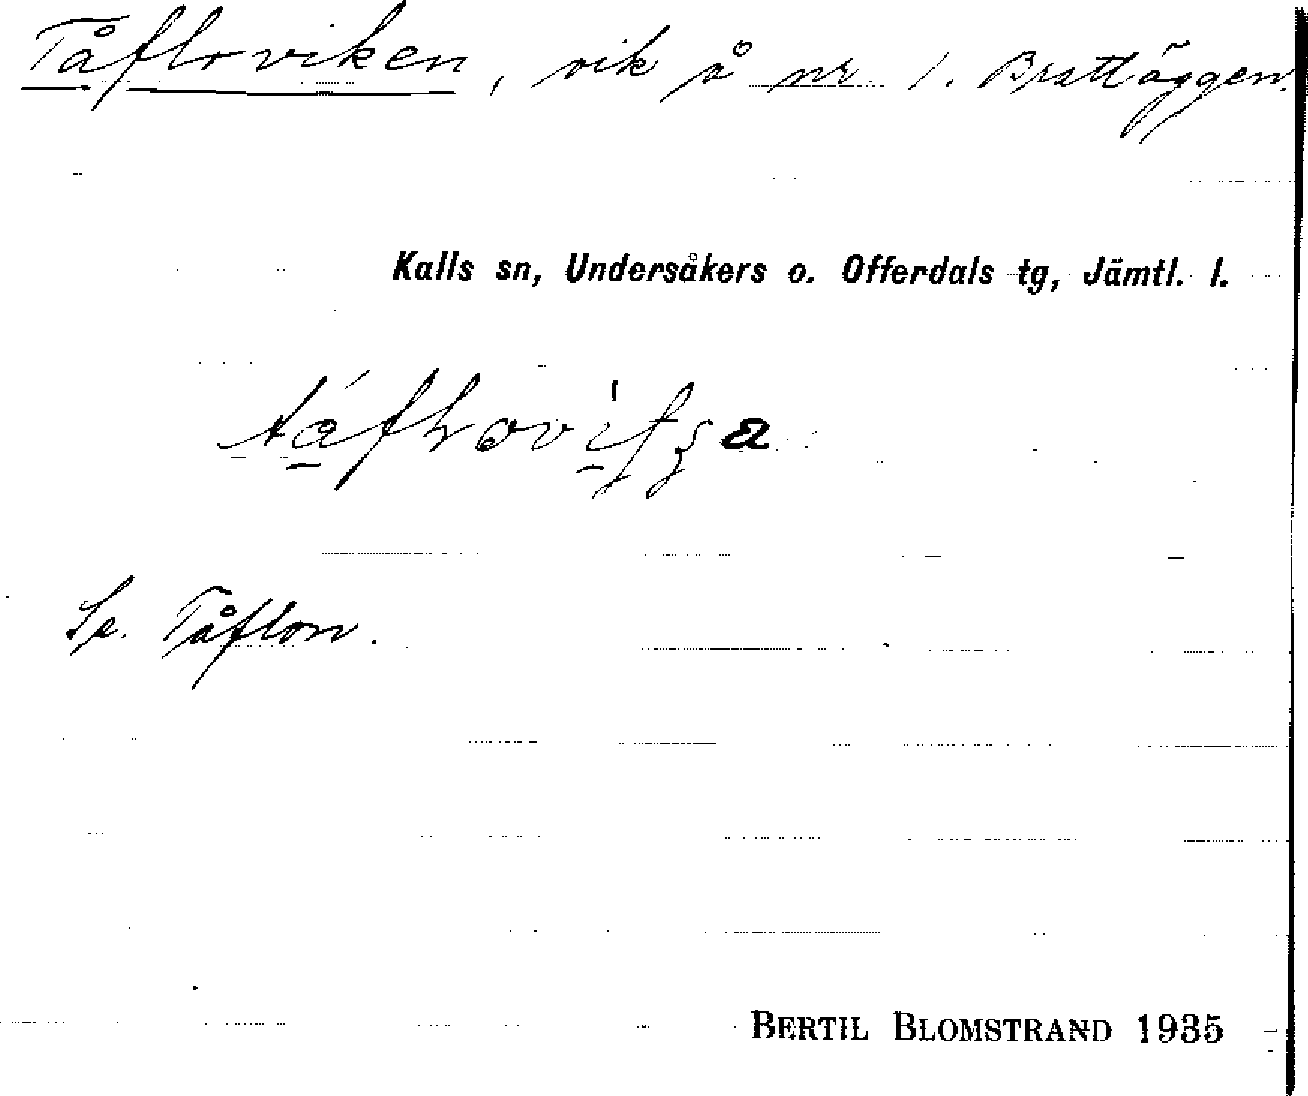 Tåfloviken, vik å nr 1. Brattäggen.
Kalls sn, Undersåkers o. Offerdals tg, Jämtl. l.
Se. Tåflon.
BERTIL BLOMSTRAND 1935